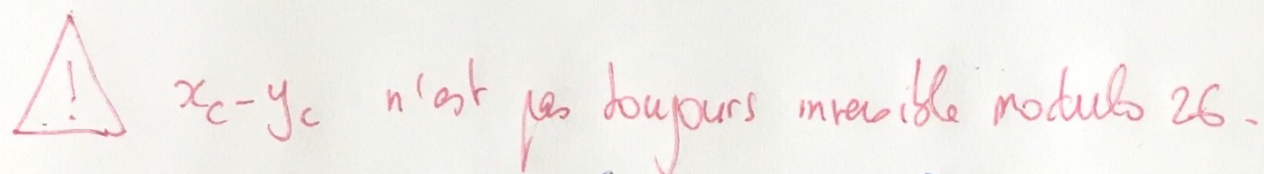 ! x_c - y_c n'est pas toujours inversible modulo 26.